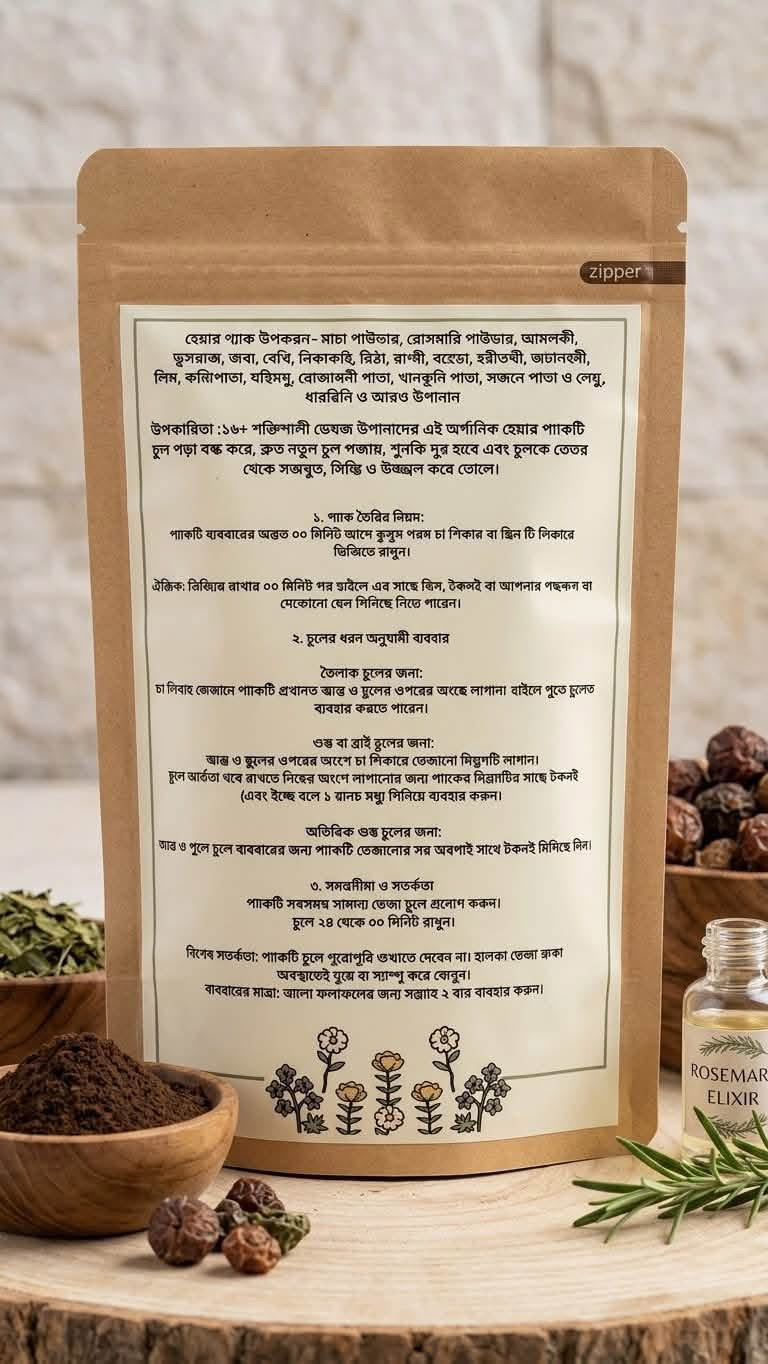 zipper
হেয়ার প্যাক উপকরন- মাচা পাউডার, রোসমারি পাউডার, আমলকী,
ভূসরাজ, জবা, বেথি, নিকাকাই, রিঠা, রাণ্মী, বহেডা, হরীতথী, জটানহসী,
লিম, কন্মিপাতা, যহিমমু, রোজাঙ্গনী পাতা, খানকুনি পাতা, সজনে পাতা ও লেযু,
ধারন্বিনি ও আরও উপানান
উপকারিতা :১৬+ শক্তিশালী ভেযজ উপানাদের এই অর্গানিক হেয়ার প্যাকটি
চুল পড়া বন্ক করে, ব্রুত নতুন চুল পজায়, শুনকি দুর হবে এবং চুলকে তেতর
থেকে সজবুত, সিল্কি ও উজ্জ্বল করে তোলে।
১. প্যাক তৈরির নিয়ম:
প্যাকটি ব্যববারের অন্তত ০০ মিনিট আসে কুসুম পরম চা শিকার বা গ্রিন টি লিকারে
ভিজিতে রাখুন।
ঐচ্ছিক: রিজিয়ে রাখার ০০ মিনিট পর চাইলে এর সাছে ডিস, টকদই বা আপনার পছন্দণ বা
মেকোনো তেল মিনিছে নিতে পারেন।
২. চুলের ধরন অনুযামী ব্যববার
তৈলাক চুলের জনা:
চা লিবাহ জেজানে প্যাকটি প্রখানত স্কান্ত ও চুলের ওপরের অংছে লাগানা চাইলে পুতে চুলেত
ব্যবহার করতে পারেন।
ওষ্ক বা ব্রাই চুলের জনা:
স্কান্ত ও চুলের ওপরের অংশে চা শিকারে ভেজানো মিয়ুণটি লাগান।
চুলে আর্ততা থবে রাখতে নিহের অংশে লাপানোর জন্য প্যাকের মিশ্রণটির সাছে টকদই
(এবং ইচ্ছে বলে ১ য়ানচ মধ্যু সিলিয়ে ব্যবহার করুন।
অতিরিক ওষ্ক চুলের জনা:
স্কান্ত ও পুলে চুলে ব্যববারের জন্য প্যাকটি ভেজানোর সর অবপাই সাথে টকনই মিমিছে লিন।
৩. সমরসীমা ও সতর্কতা
প্যাকটি সবসময় সামান্য ভেজা চুলে প্রলেপ করুন।
চুলে ২৪ থেকে ০০ মিনিট রাখুন।
বিশেষ সতর্কতা: প্যাকটি চুলে পুরোপুরি ওখাতে দেবেন না। হালকা ভেজা থাকা
অবস্থাতেই যুয়ে বা স্যাম্পু করে ফেলুন।
ব্যববারের মাত্রা: আলো ফলাফলের জন্য সপ্তাহে ২ বার ব্যবহার করুন।
ROSEMAR
ELIXIR